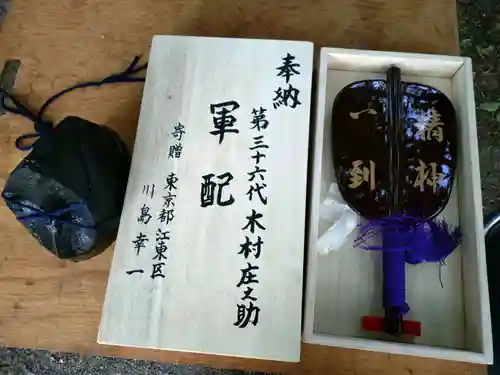 奉納
第三十六代木村庄之助
軍配
寄贈 東京都江東区
川島幸一
精神
一到